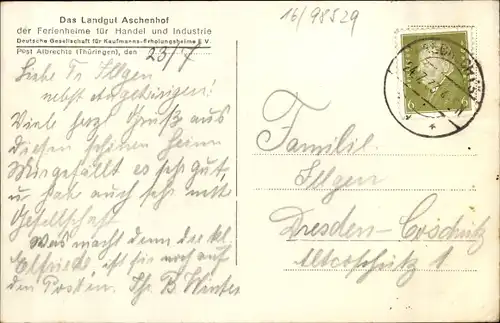 Das Landgut Aschenhof
der Ferienheime für Handel und Industrie
Deutsche Gesellschaft für Kaufmanns-Erholungsheime E.V.
Post Albrechts (Thüringen), den 23/7
16/98529
Liebe Fr Illgen
nebst Angehörigen!
Viele herzl Gruß aus
diesem schönen Heim
Mir gefällt es sehr gut,
u. hab auch sehr nett
Gesellschaft
Was macht denn die kl
Elfriede, ist sie noch auf
den Posten. Ihr B. Winter
6 6
Familie
Illgen
Dresden-Coschütz
Altcoschütz 1